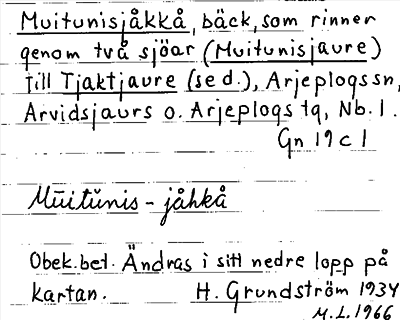 Muitunisjåkkå, bäck, som rinner
genom två sjöar (Muitunisjaure)
till Tjaktjaure (se d.), Arjeplogs sn,
Arvidsjaurs o. Arjeplogs tg, Nb. l.
Gn 19 c 1
Mūitŭnis - jåhkå
Obek. bet. Ändras i sitt nedre lopp på
kartan. H. Grundström 1934
M.L. 1966